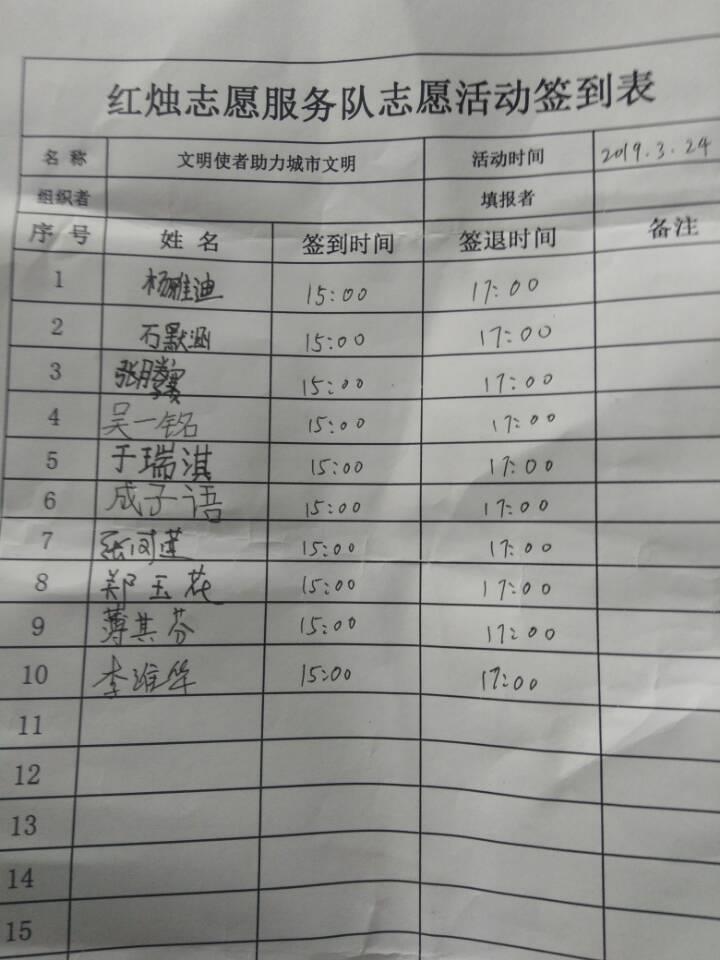 红烛志愿服务队志愿活动签到表
名 称 文明使者助力城市文明 活动时间 2019.3.24
组织者 填报者
序 号 姓 名 签到时间 签退时间 备注
1 杨雅迪 15:00 17:00
2 石默涵 15:00 17:00
3 15:00 17:00
4 吴一铭 15:00 17:00
5 于瑞淇 15:00 17:00
6 成子语 15:00 17:00
7 15:00 17:00
8 郑玉花 15:00 17:00
9 薄其芬 15:00 17:00
10 李淮华 15:00 17:00
11
12
13
14
15